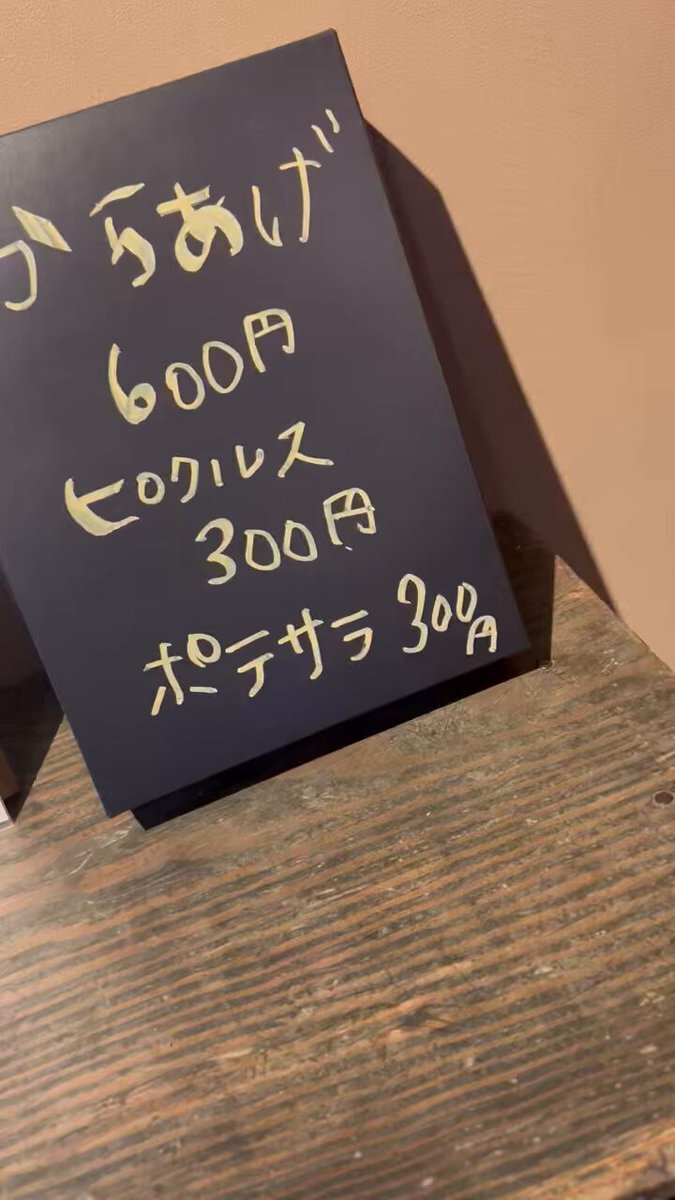 からあげ
600円
ピクルス
300円
ポテサラ 300円